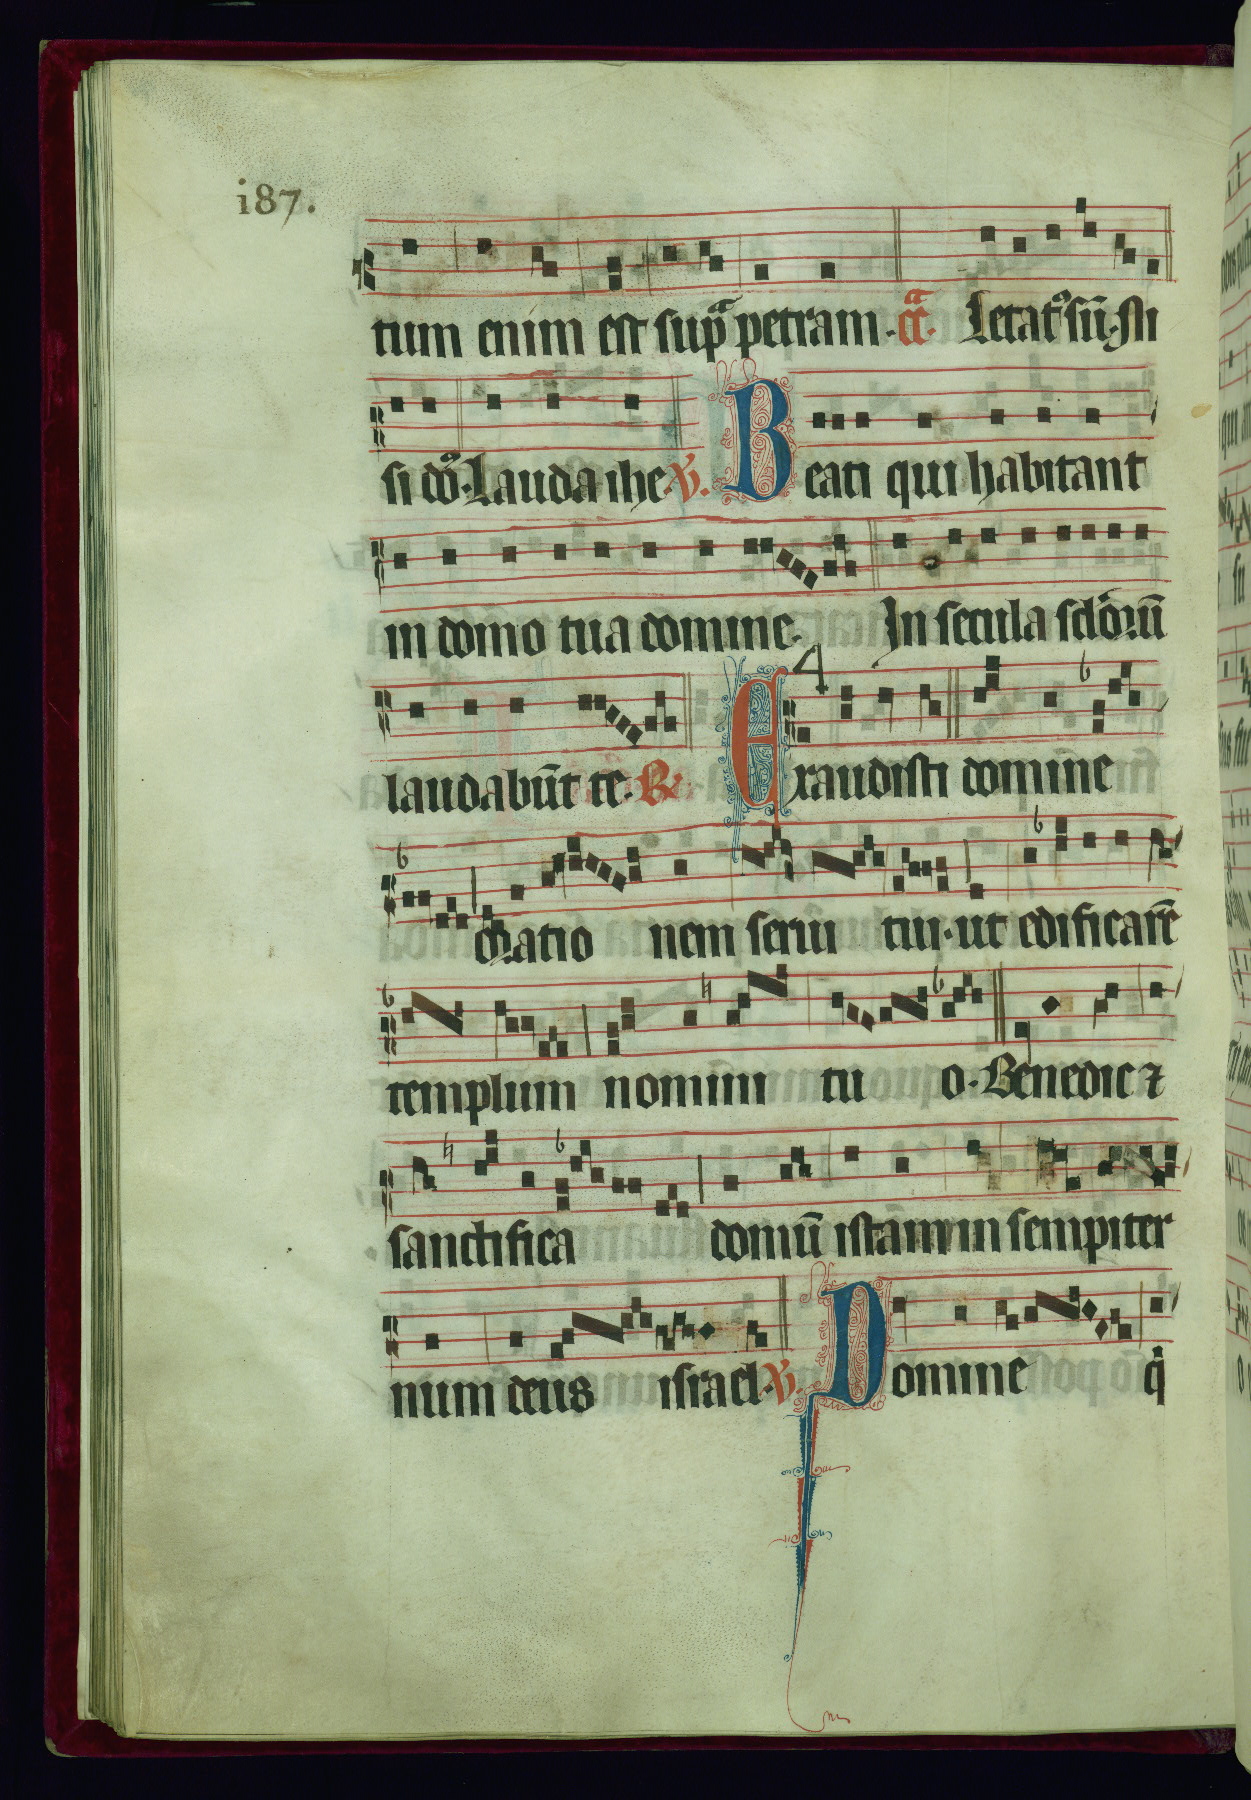 i87.
tum enim est supᵃ petram. cᵃ. Letat᷒ sū. Ni
si dō᷒. Lauda ihe. V. Beati qui habitant
in domo tua domine. In secula sclōrū
laudabūt te. R. Exaudisti domine
4
oratio nem serui tui. ut edificarē
templum nomini tu o. Benedic ⁊
sanctifica domū istam in sempiter
num deus israel. V. Domine qͥ